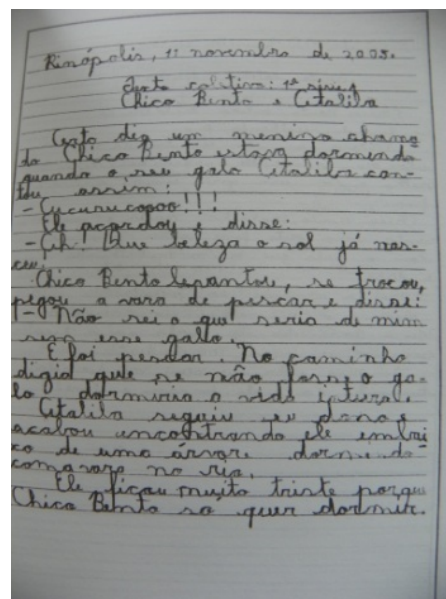 Rinópolis, 1: novembro de 2005.
Texto coletivo: 1ª série
Chico Bento e Atalilba
Certo dia um menino chama
do Chico Bento estava dormindo
quando o seu galo Atalilba can-
tou assim:
- Cucurucoooo!!!
Ele acordou e disse:
- Eh! Que beleza o sol já nas-
ceu.
Chico Bento levantou, se trocou,
pegou a vara de pescar e disse:
- Não sei o que seria de mim
sem esse galo.
E foi pescar. No caminho
digia que se não fosse o ga-
lo dormiria a vida intura.
Atalilba seguiu seu dono e
acabou encontrando ele embai
xo de uma árvore dormindo
com a vara no rio.
Ele ficou muito triste porque
Chico Bento só quer dormir.